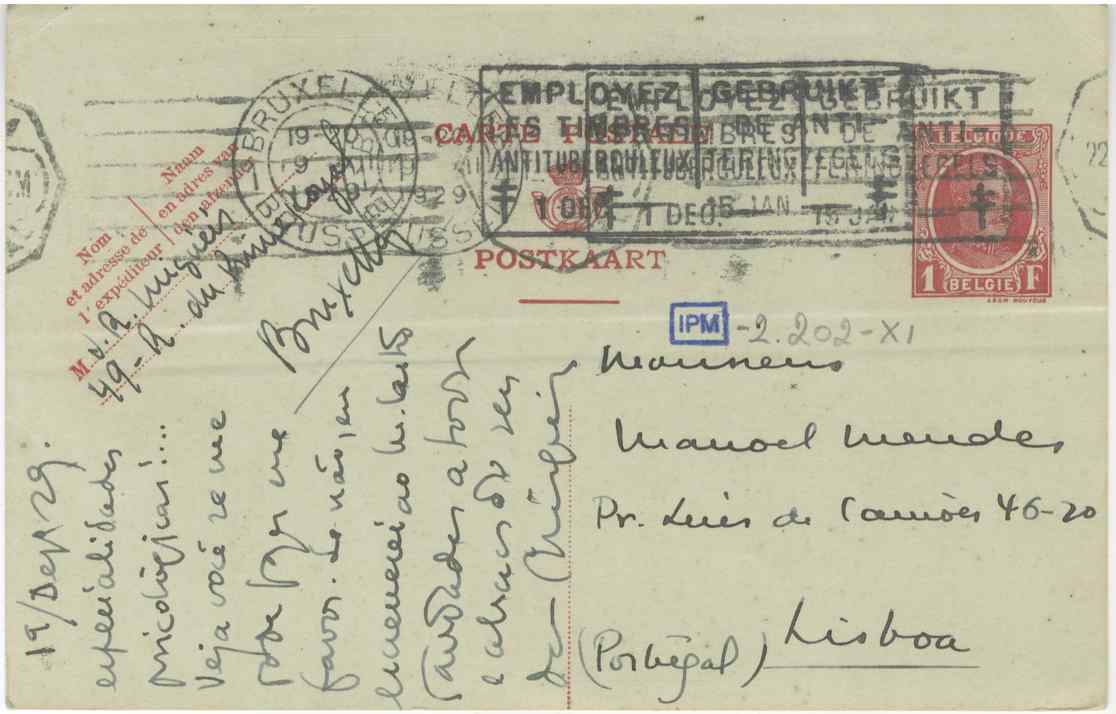 BRUXELLES
BRUSSEL
1929
EMPLOYEZ
LES TIMBRES
ANTITUBERCULEUX
GEBRUIKT
DE ANTI-
TERINGZEGELS
1 DEC. 15 JAN.
EMPLOYEZ
GEBRUIKT
DE ANTI-
TERINGZEGELS
1 DEC. 15 JAN.
CARTE POSTALE
POSTKAART
BELGIQUE
1 F
BELGIE
Naam
en adres van
den afzender
Nom
et adresse de
l'expéditeur
M J. R. Miguéis
49-R. du Runnel
Bruxelles
IPM -2.202-XI
Monsieur
Manoel Mendes
Pr. Luis de Camões 46-2o
Lisboa
(Portugal)
19/Sept/29.
especialidades
psicológicas!...
Veja você se me
pode fazer me
favor. Se não, eu
Saudades a todos
e abraços do seu